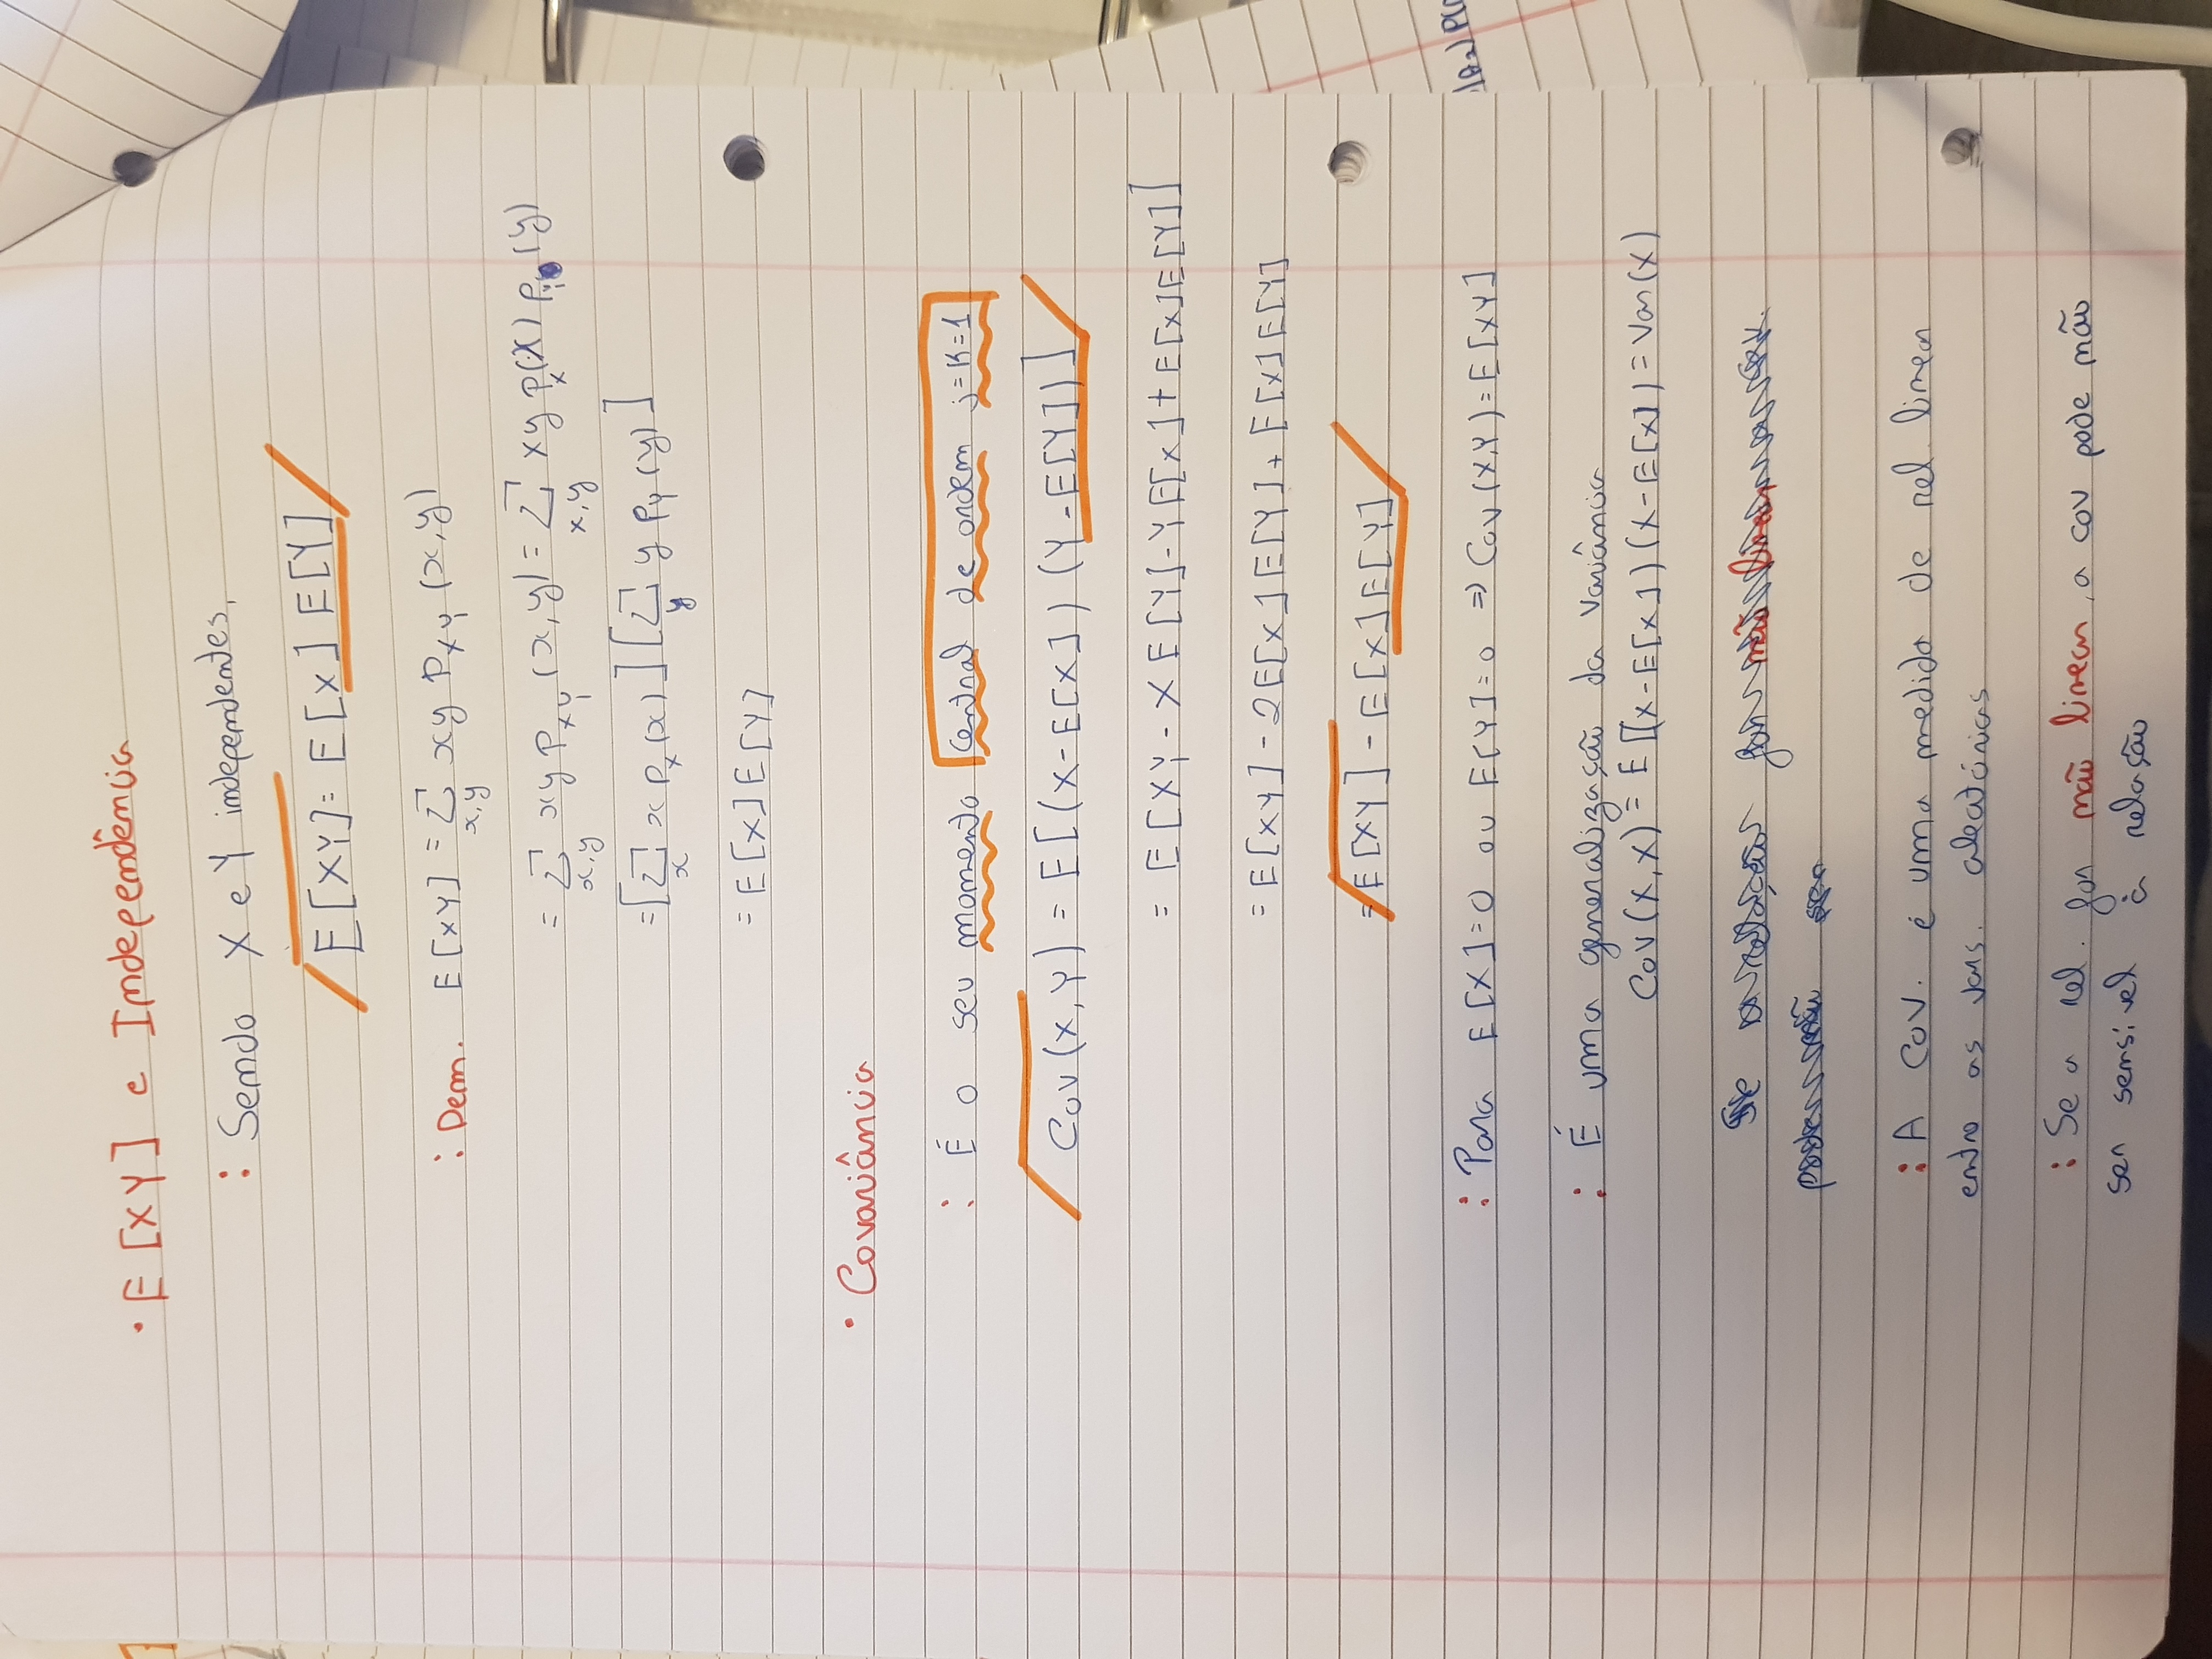 · E[XY] e Independência
: Sendo X e Y independentes,
E[XY] = E[X] E[Y]
: Dem. E[XY] = Σ_{x,y} xy P_{XY}(x,y)
= Σ_{x,y} xy P_{XY}(x,y) = Σ_{x,y} xy P_X(x) P_Y(y)
= [Σ_x x P_X(x)] [Σ_y y P_Y(y)]
= E[X]E[Y]
· Covariância
: É o seu momento central de ordem j=K=1
Cov(X,Y) = E[(X-E[X]) (Y-E[Y])]
= E[XY - X E[Y] - Y E[X] + E[X]E[Y]]
= E[XY] - 2E[X]E[Y] + E[X]E[Y]
= E[XY] - E[X]E[Y]
: Para E[X]=0 ou E[Y]=0 ⇒ Cov(X,Y)=E[XY]
: É uma generalização da Variância
Cov(X,X) = E[(X-E[X])(X-E[X]) = Var(X)
: A Cov. é uma medida de rel. linear
entre as vars. aleatórias
: Se a rel. for não linear, a cov pode não
ser sensível à relação